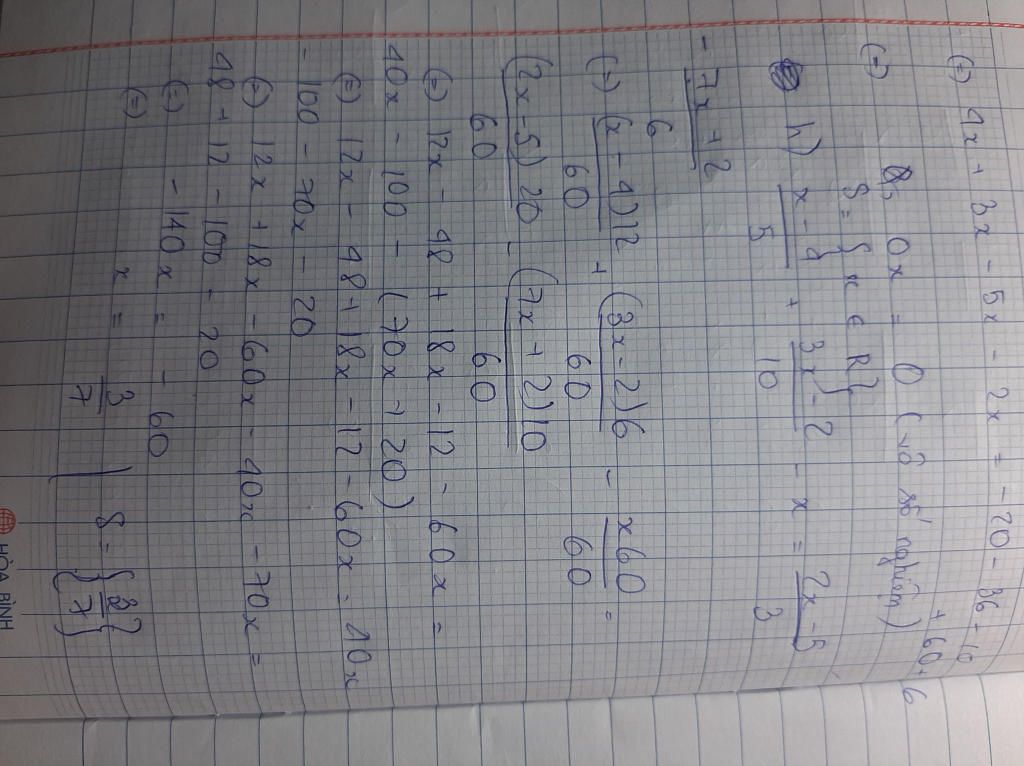 (=) 4x + 3x - 5x - 2x = -20 - 36 + 10
+ 60 + 6
(=) 0x = 0 (vô số nghiệm)
S = {x ∈ R}
h) x - 4 / 5 + 3x - 2 / 10 - x = 2x - 5 / 3
- 7x + 2 / 6
(=) (x - 4)12 / 60 + (3x - 2)6 / 60 - x60 / 60 =
(2x - 5)20 / 60 - (7x + 2)10 / 60
(=) 12x - 48 + 18x - 12 - 60x =
40x - 100 - (70x + 20)
(=) 12x - 48 + 18x - 12 - 60x = 40x
- 100 - 70x - 20
(=) 12x + 18x - 60x - 40x - 70x =
48 + 12 - 100 - 20
(=) - 140x = - 60
(=) x = 3 / 7 | S = {3 / 7}
HÒA BÌNH